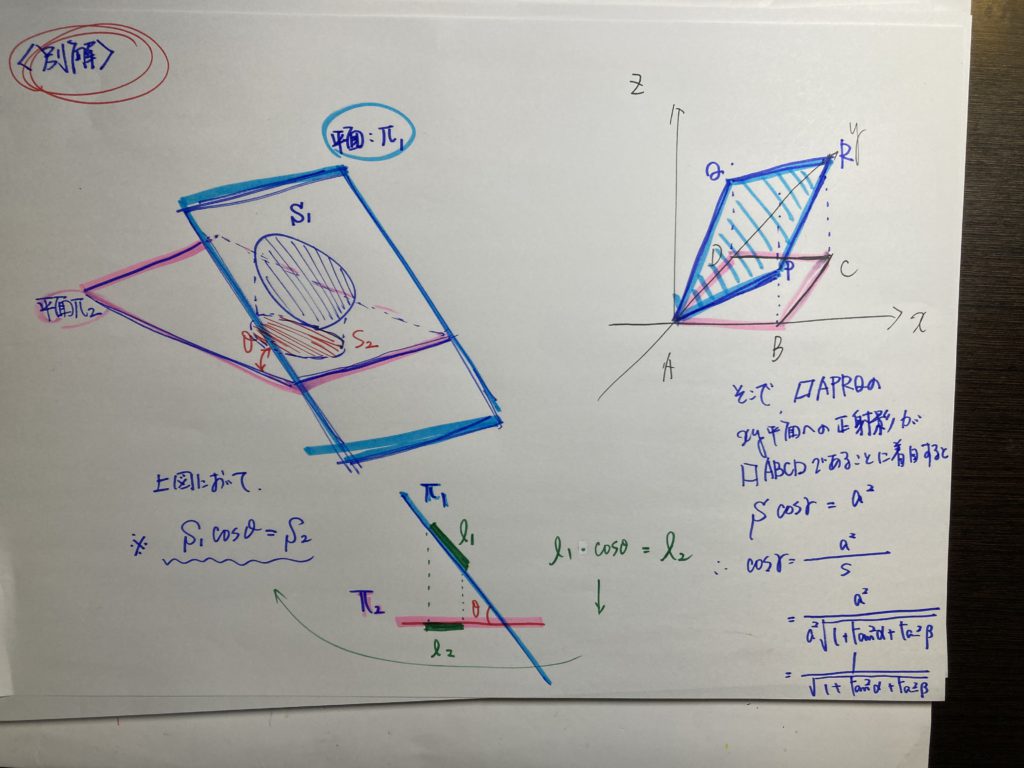 〈別解〉
平面:π₁
S₁
平面π₂
θ
S₂
上図において、
※ S₁cosθ=S₂
π₁
l₁
π₂
θ
l₂
l₁・cosθ=l₂
z
y
Q
R
D
P
C
x
A
B
そこで、□APRQの
xy平面への正射影が
□ABCDであることに着目すると
S cosγ = a²
∴ cosγ = a²/S
= a²/a²√1+tan²α+tan²β
= 1/√1+tan²α+tan²β